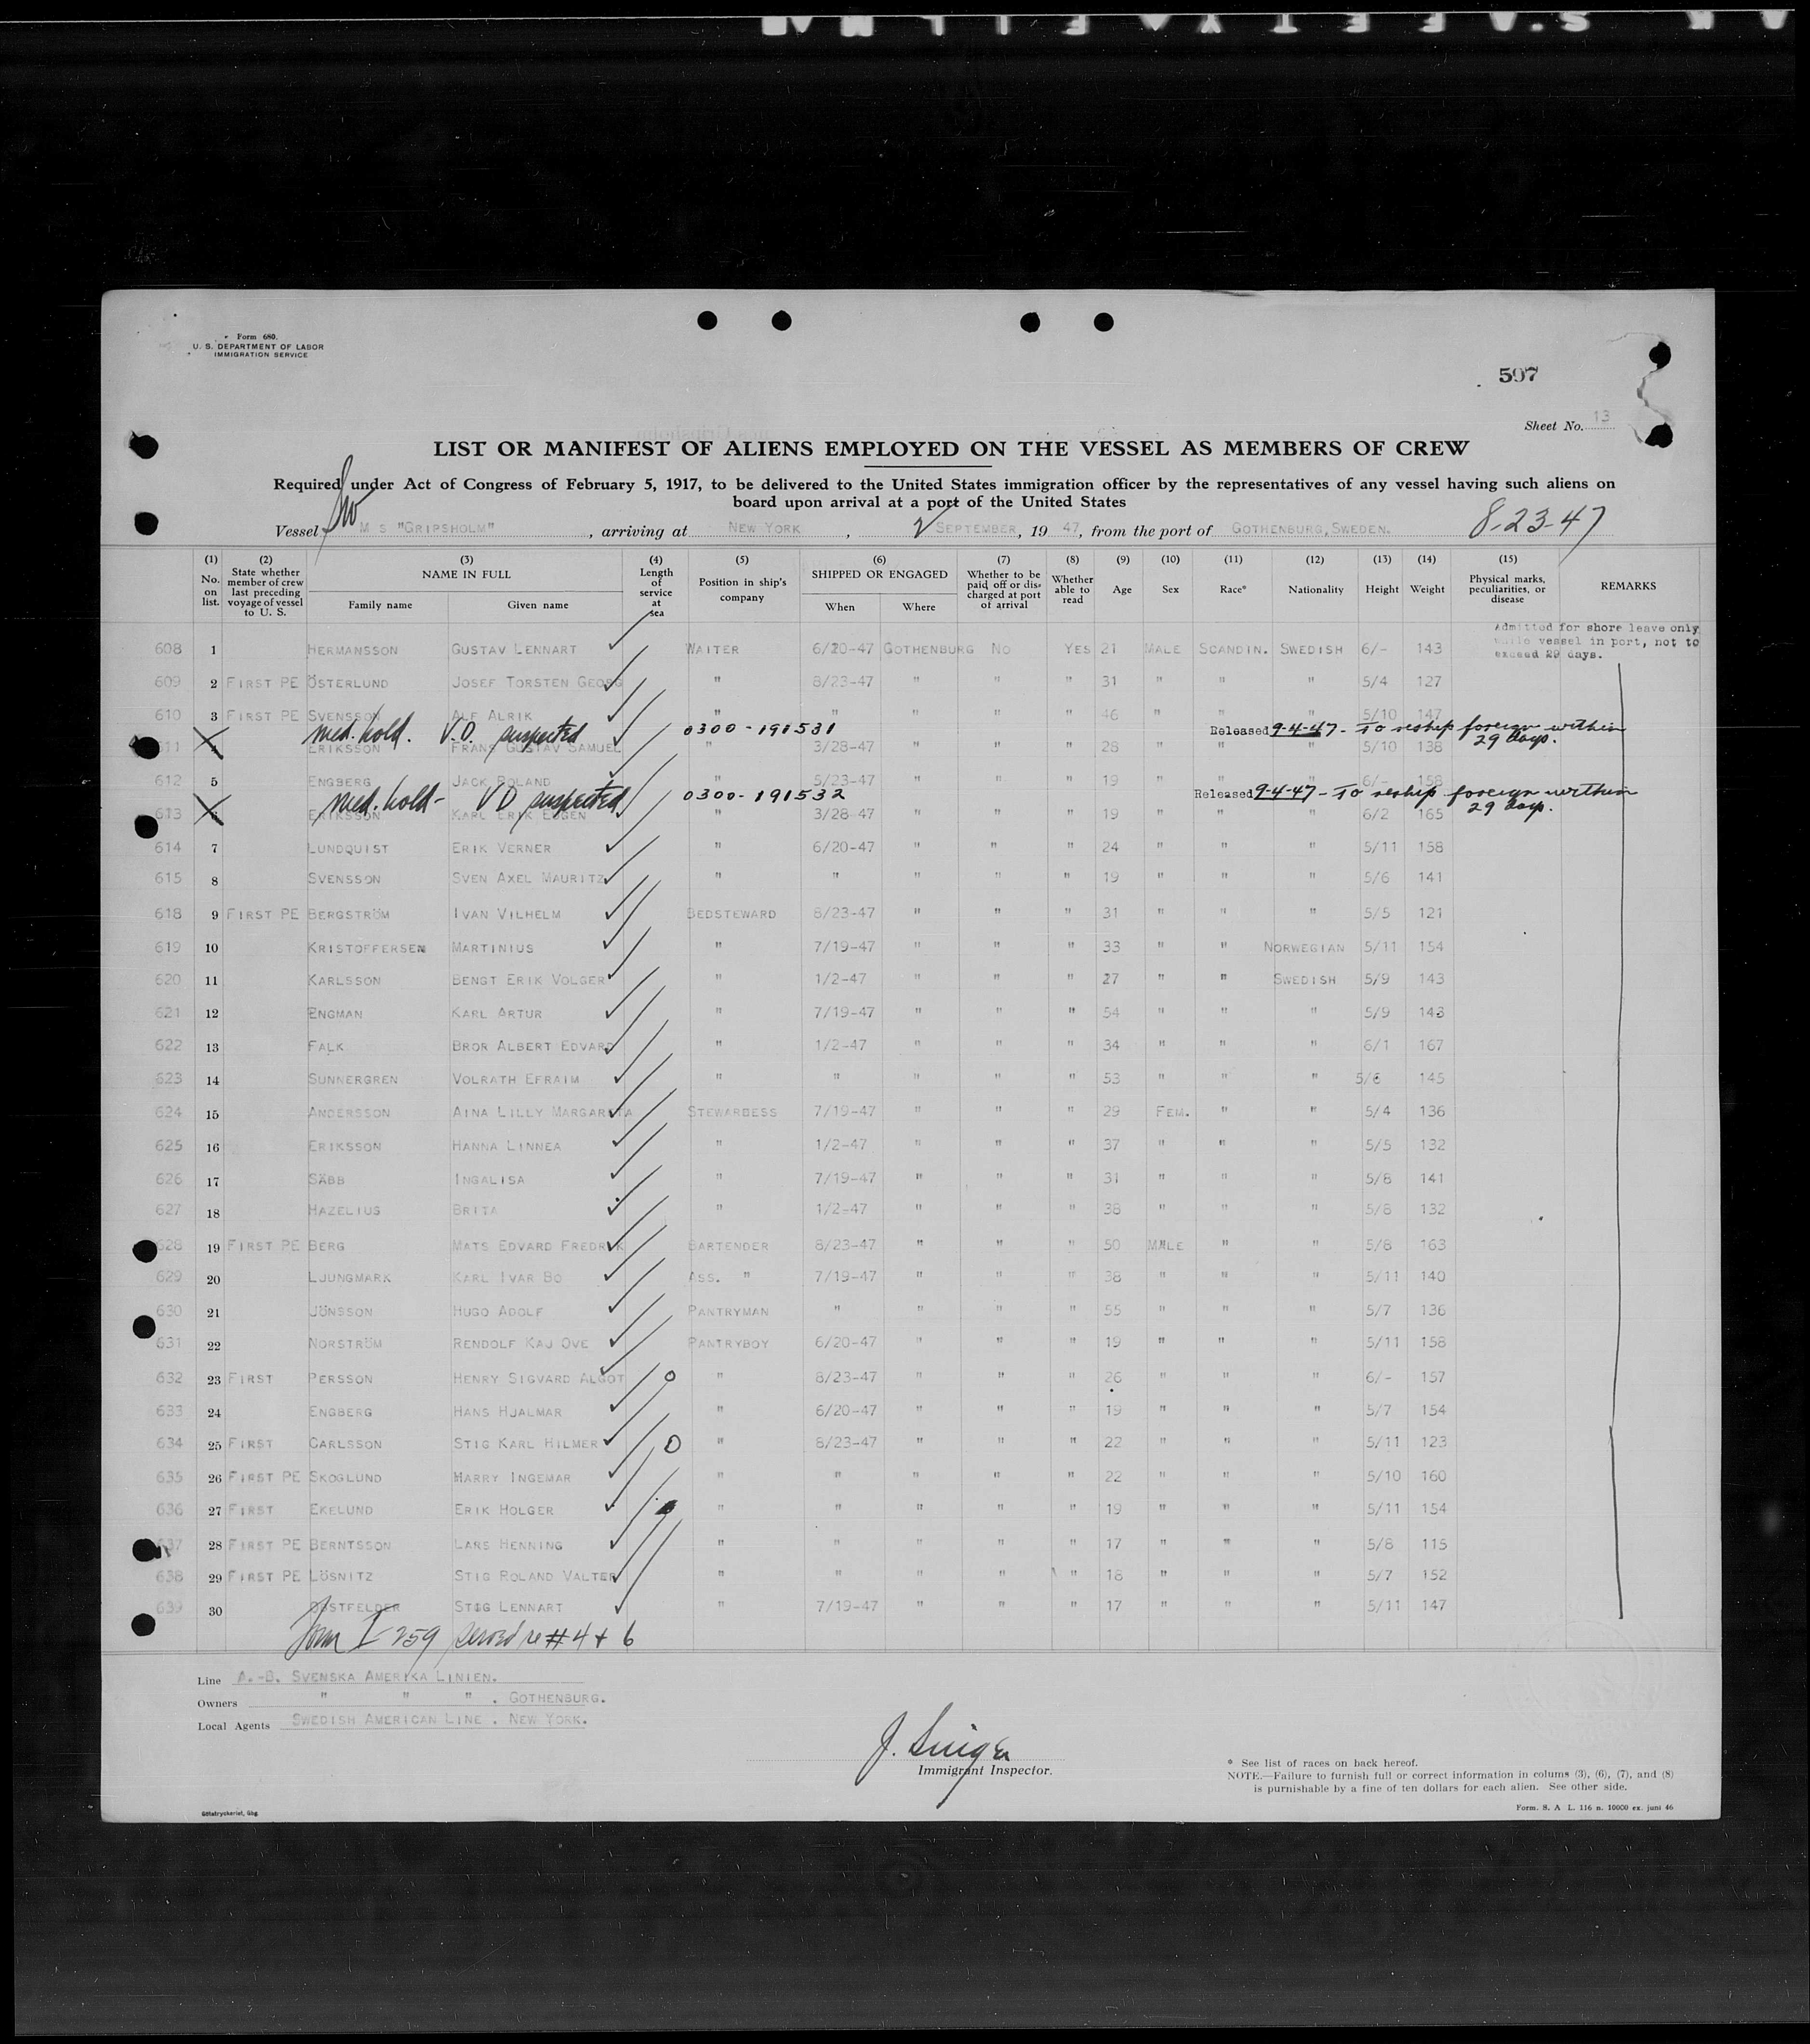 SAFETY FILM
Form 680.
U. S. DEPARTMENT OF LABOR
IMMIGRATION SERVICE
597
Sheet No. 13
LIST OR MANIFEST OF ALIENS EMPLOYED ON THE VESSEL AS MEMBERS OF CREW
Required under Act of Congress of February 5, 1917, to be delivered to the United States immigration officer by the representatives of any vessel having such aliens on
board upon arrival at a port of the United States
Vessel M S "GRIPSHOLM", arriving at NEW YORK, 2 SEPTEMBER, 19 47, from the port of GOTHENBURG, SWEDEN. 8-23-47
(1) No. on list.
(2) State whether member of crew last preceding voyage of vessel to U. S.
(3) NAME IN FULL Family name Given name
(4) Length of service at sea
(5) Position in ship's company
(6) SHIPPED OR ENGAGED When Where
(7) Whether to be paid off or discharged at port of arrival
(8) Whether able to read
(9) Age
(10) Sex
(11) Race*
(12) Nationality
(13) Height
(14) Weight
(15) Physical marks, peculiarities, or disease
REMARKS
Admitted for shore leave only
while vessel in port, not to
exceed 29 days.
608 1 HERMANSSON GUSTAV LENNART WAITER 6/20-47 GOTHENBURG NO YES 21 MALE SCANDIN. SWEDISH 6/- 143
609 2 FIRST PE ÖSTERLUND JOSEF TORSTEN GEORG " 8/23-47 " " " 31 " " " 5/4 127
610 3 FIRST PE SVENSSON ALF ALRIK " " " " " 46 " " " 5/10 147
med. hold. V.D. suspected 0300-191531 Released 9-4-47 - To reship foreign within 29 days.
611 4 ERIKSSON FRANS GUSTAV SAMUEL " 3/28-47 " " " 28 " " " 5/10 138
612 5 ENGBERG JACK ROLAND " 5/23-47 " " " 19 " " " 6/- 158
med. hold - VD suspected 0300-191532 Released 9-4-47 - To reship foreign within 29 days.
613 6 ERIKSSON KARL ERIK EUGEN " 3/28-47 " " " 19 " " " 6/2 165
614 7 LUNDQUIST ERIK VERNER " 6/20-47 " " " 24 " " " 5/11 158
615 8 SVENSSON SVEN AXEL MAURITZ " " " " " 19 " " " 5/6 141
618 9 FIRST PE BERGSTRÖM IVAN VILHELM BEDSTEWARD 8/23-47 " " " 31 " " " 5/5 121
619 10 KRISTOFFERSEN MARTINIUS " 7/19-47 " " " 33 " " NORWEGIAN 5/11 154
620 11 KARLSSON BENGT ERIK VOLGER " 1/2-47 " " " 27 " " SWEDISH 5/9 143
621 12 ENGMAN KARL ARTUR " 7/19-47 " " " 54 " " " 5/9 143
622 13 FALK BROR ALBERT EDVARD " 1/2-47 " " " 34 " " " 6/1 167
623 14 SUNNERGREN VOLRATH EFRAIM " " " " " 53 " " " 5/6 145
624 15 ANDERSSON AINA LILLY MARGARETA STEWARDESS 7/19-47 " " " 29 FEM. " " 5/4 136
625 16 ERIKSSON HANNA LINNEA " 1/2-47 " " " 37 " " " 5/5 132
626 17 SÄBB INGALISA " 7/19-47 " " " 31 " " " 5/8 141
627 18 HAZELIUS BRITA " 1/2-47 " " " 38 " " " 5/8 132
628 19 FIRST PE BERG MATS EDVARD FREDRIK BARTENDER 8/23-47 " " " 50 MALE " " 5/8 163
629 20 LJUNGMARK KARL IVAR BO ASS. " 7/19-47 " " " 38 " " " 5/11 140
630 21 JÖNSSON HUGO ADOLF PANTRYMAN " " " " 55 " " " 5/7 136
631 22 NORSTRÖM RENDOLF KAJ OVE PANTRYBOY 6/20-47 " " " 19 " " " 5/11 158
632 23 FIRST PERSSON HENRY SIGVARD ALGOT 0 " 8/23-47 " " " 26 " " " 6/- 157
633 24 ENGBERG HANS HJALMAR " 6/20-47 " " " 19 " " " 5/7 154
634 25 FIRST CARLSSON STIG KARL HILMER 0 " 8/23-47 " " " 22 " " " 5/11 123
635 26 FIRST PE SKOGLUND HARRY INGEMAR " " " " " 22 " " " 5/10 160
636 27 FIRST EKELUND ERIK HOLGER " " " " " 19 " " " 5/11 154
637 28 FIRST PE BERNTSSON LARS HENNING " " " " " 17 " " " 5/8 115
638 29 FIRST PE LÖSNITZ STIG ROLAND VALTER " " " " " 18 " " " 5/7 152
639 30 STIG LENNART " 7/19-47 " " " 17 " " " 5/11 147
Form I-259 served re #4 + 6
Line A.-B. SVENSKA AMERIKA LINIEN.
Owners " " " . GOTHENBURG.
Local Agents SWEDISH AMERICAN LINE . NEW YORK.
J. Singer
Immigrant Inspector.
* See list of races on back hereof.
NOTE.—Failure to furnish full or correct information in colums (3), (6), (7), and (8)
is purnishable by a fine of ten dollars for each alien. See other side.
Götatryckeriet, Gbg
Form. S. A L. 116 n. 10000 ex. juni 46